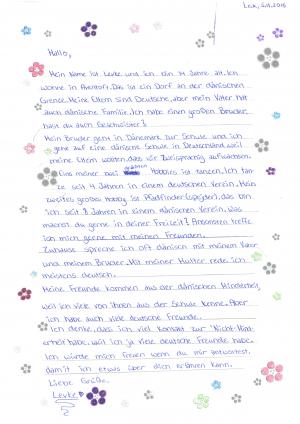 Leck, 5.11.2015
Hallo,
Mein Name ist Levke und ich bin 14 Jahre alt. Ich
wohne in Aventoft. Das ist ein Dorf an der dänischen
Grenze. Meine Eltern sind Deutsche, aber mein Vater hat
auch dänische Familie. Ich habe einen großen Bruder,
hast du auch Geschwister?
Mein Bruder geht in Dänemark zur Schule und ich
gehe auf eine dänische Schule in Deutschland, weil
meine Eltern wollten, dass wir zweisprachig aufwachsen.
großen
Eins meiner zwei Hobbies ist tanzen. Ich tan-
ze seit 4 Jahren in einem deutschen Verein. Mein
zweites großes Hobby ist Pfadfinder (spejder), das bin
ich seit 8 Jahren in einem dänischen Verein. Was
machst du gerne in deiner Freizeit? Ansonsten treffe
ich mich gerne mit meinen Freunden.
Zuhause spreche ich oft dänisch mit meinem Vater
und meinem Bruder. Mit meiner Mutter rede ich
meistens deutsch.
Meine Freunde kommen aus der dänischen Minderheit,
weil ich viele von ihnen aus der Schule kenne. Aber
ich habe auch viele deutsche Freunde.
Ich denke, dass ich viel Kontakt zur "Nicht-Mind-
erheit" habe, weil ich ja viele deutsche Freunde habe.
Ich würde mich freuen wenn du mir antwortest,
damit ich etwas über dich erfahren kann.
Liebe Grüße,
Levke